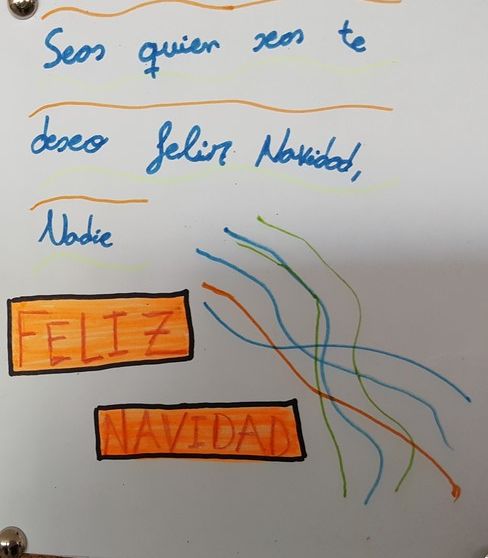 Seas quien seas te
deseo feliz Navidad,
Nadie
FELIZ
NAVIDAD